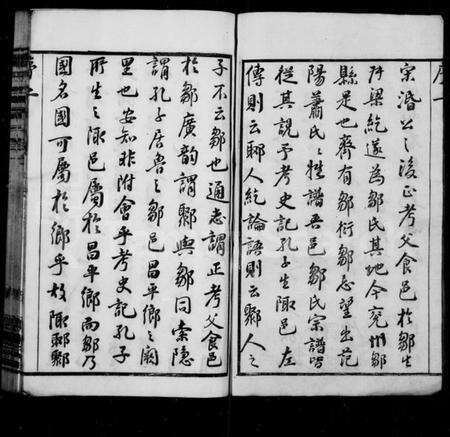 序一
宋湣公之後正考父食邑於鄒生
叔梁紇遂為鄒氏其地今兖州鄒
縣是也齊有鄒衍鄒忌望出范
陽蕭氏之姓譜吾邑鄒氏宗譜皆
從其說予考史記孔子生陬邑左
傳則云郰人紇論語則云鄹人之
子不云鄒也通志謂正考父食邑
於鄒廣韵謂鄹與鄒同索隱
謂孔子居魯之鄒邑昌平鄉之闕
里也安知非附會乎考史記孔子
所生之陬邑屬於昌平鄉而鄒乃
國名國可屬於鄉乎故陬郰鄹